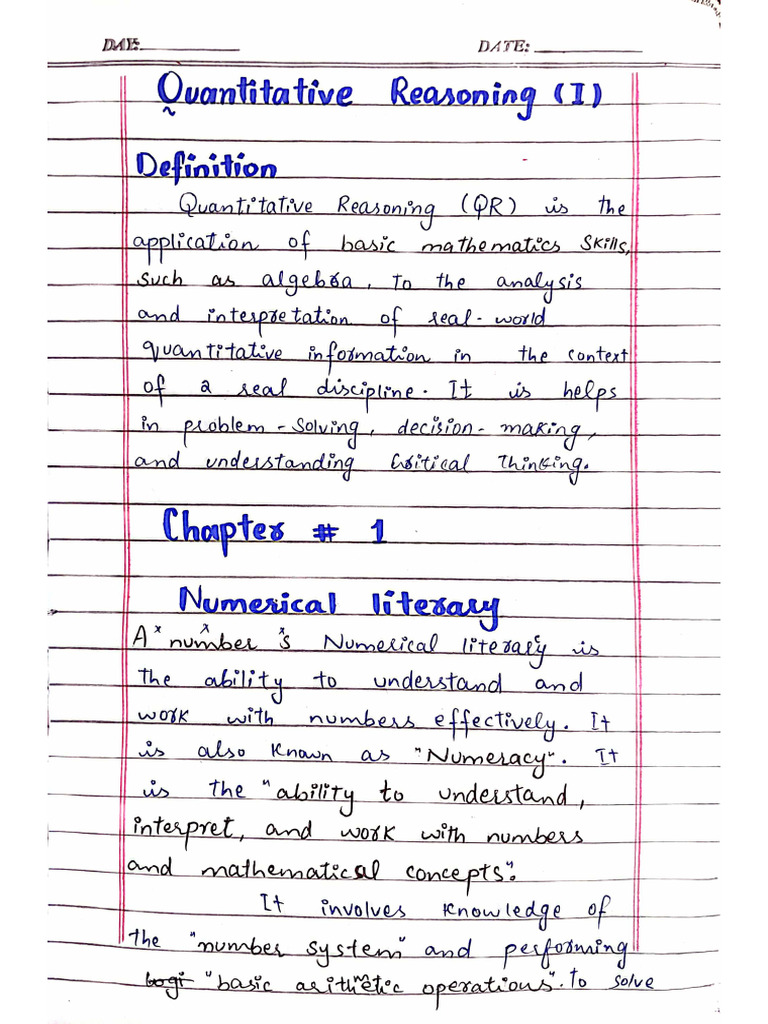 DAY: DATE:
Quantitative Reasoning (I)
Definition
Quantitative Reasoning (QR) is the
application of basic mathematics skills,
such as algebra, to the analysis
and interpretation of real-world
quantitative information in the context
of a real discipline. It is helps
in problem-solving, decision-making,
and understanding Critical Thinking.
Chapter # 1
Numerical literary
A number is Numerical literacy is
the ability to understand and
work with numbers effectively. It
is also known as "Numeracy". It
is the "ability to understand,
interpret, and work with numbers
and mathematical concepts".
It involves knowledge of
the "number system" and performing
Logi "basic arithmetic operations". To solve